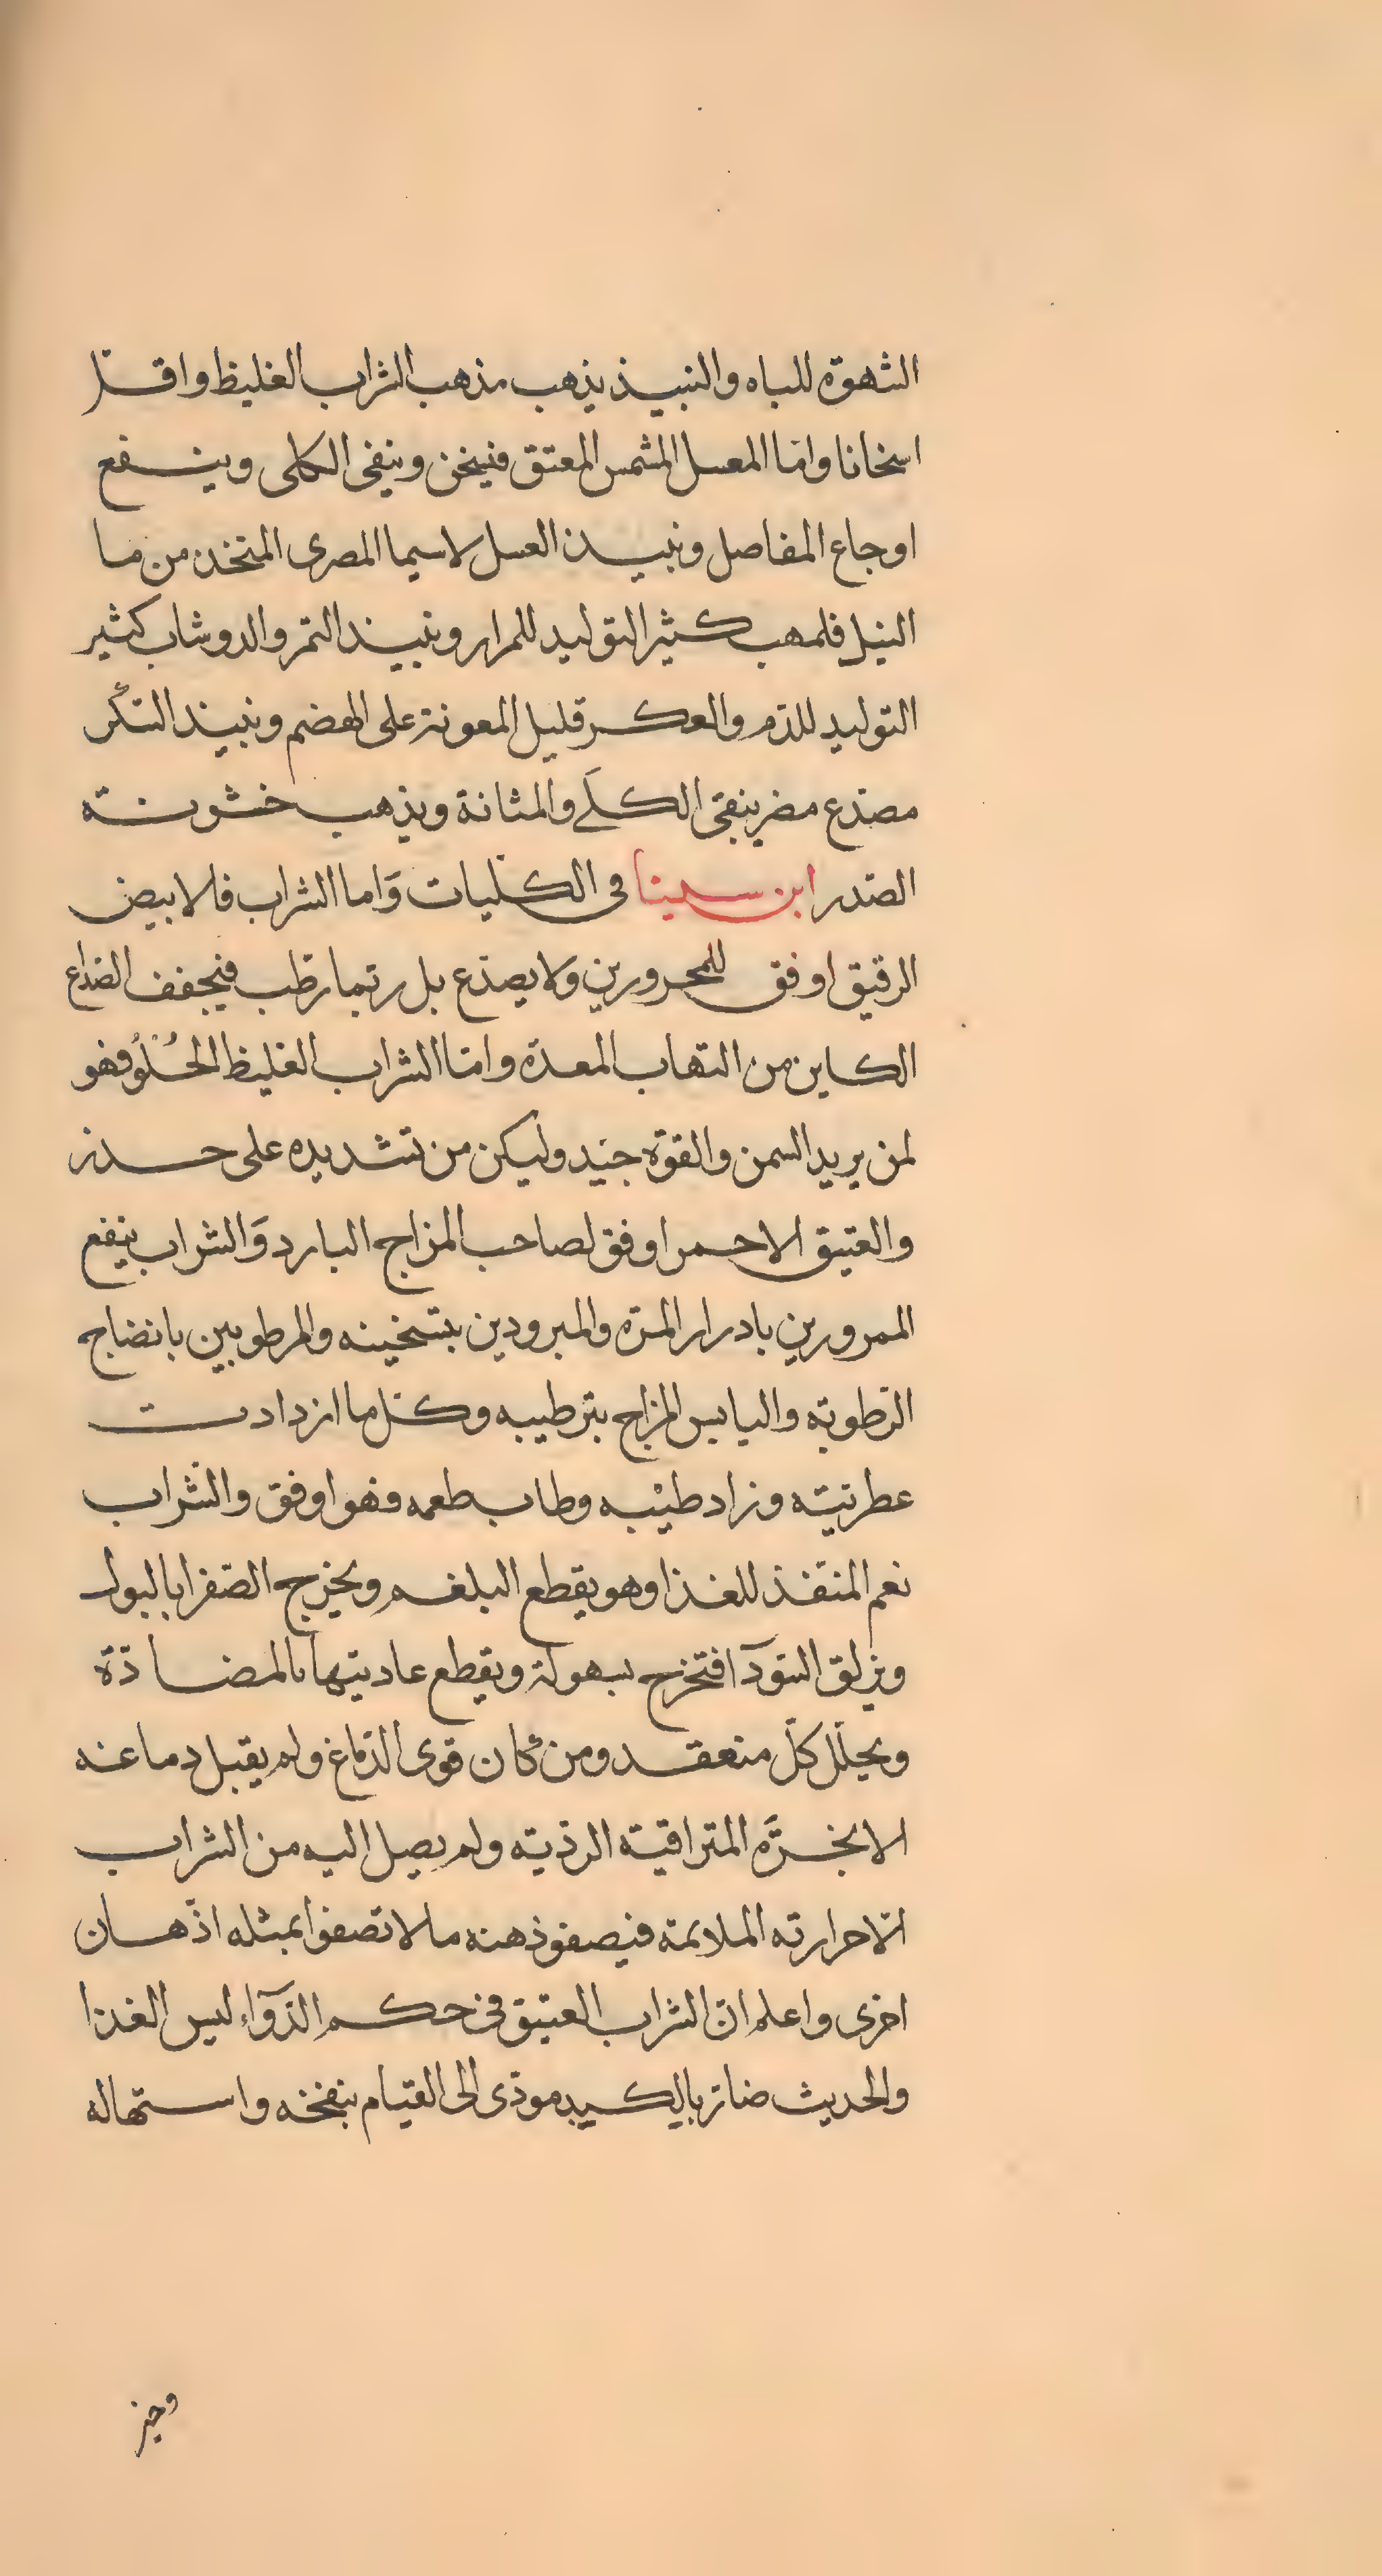 الشهوة للباه والنبيذ يذهب مذهب الشراب الغليظ واقلّ
اسخانا وامّا المعسل المشمس المعتق فيسخن وينقى الكلى وينفع
اوجاع المفاصل ونبيذ العسل لاسيما المصرى المتخذ من ما
النيل فلمهب كثير التوليد للمرار ونبيذ التمر والدوشاب كثير
التوليد للدّم والعكر قليل المعونة على الهضم ونبيذ السّكّر
مصدّع مضر ينقى الكلَى والمثانة ويذهب خشونته
الصّدر ابن سينا فى الكلّيات وَاما الشراب فالابيض
الرقيق اوفق للمحرورين ولا يصدّع بل ربّما رطّب فيجفف الصّداع
الكاين من التهاب المعدة وامّا الشراب الغليظ الحُلْوُ فهو
لمن يريد السمن والقوّة جيّد وليكن من تشديده على حذر
والعتيق الاحمر اوفق لصاحب المزاج البارد وَالشراب ينفع
الممرورين بادرار المرّة والمبرودين بتسخينه والمرطوبين بانضاج
الرّطوبه واليابس المزاج بترطيبه وكلّما ازدادت
عطريّته وزاد طيْبه وطاب طعمه وهو اوفق والشّراب
نعم المنقذ للغذا وهو يقطع البلغم ويخرج الصّفرا بالبول
ويزلق السّوَدآ فتخرج بسهولة ويقطع عاديتها بالمضادّة
ويحلّل كلّ منعقد ومن كان قوى الدّماغ ولم يقبل دماغه
الابخرَّة المتراقيّة الرذيّه ولم يصل اليه من الشراب
الّا حرارته الملائمة فيصفو ذهنه ما لا تصفوا بمثله اذّهان
اخرى واعلم انّ الشراب العتيق فى حكم الدّوَآء ليس الغذا
والحديث ضارّ بالكبد موذى الى القيام بنفخه واستهاله